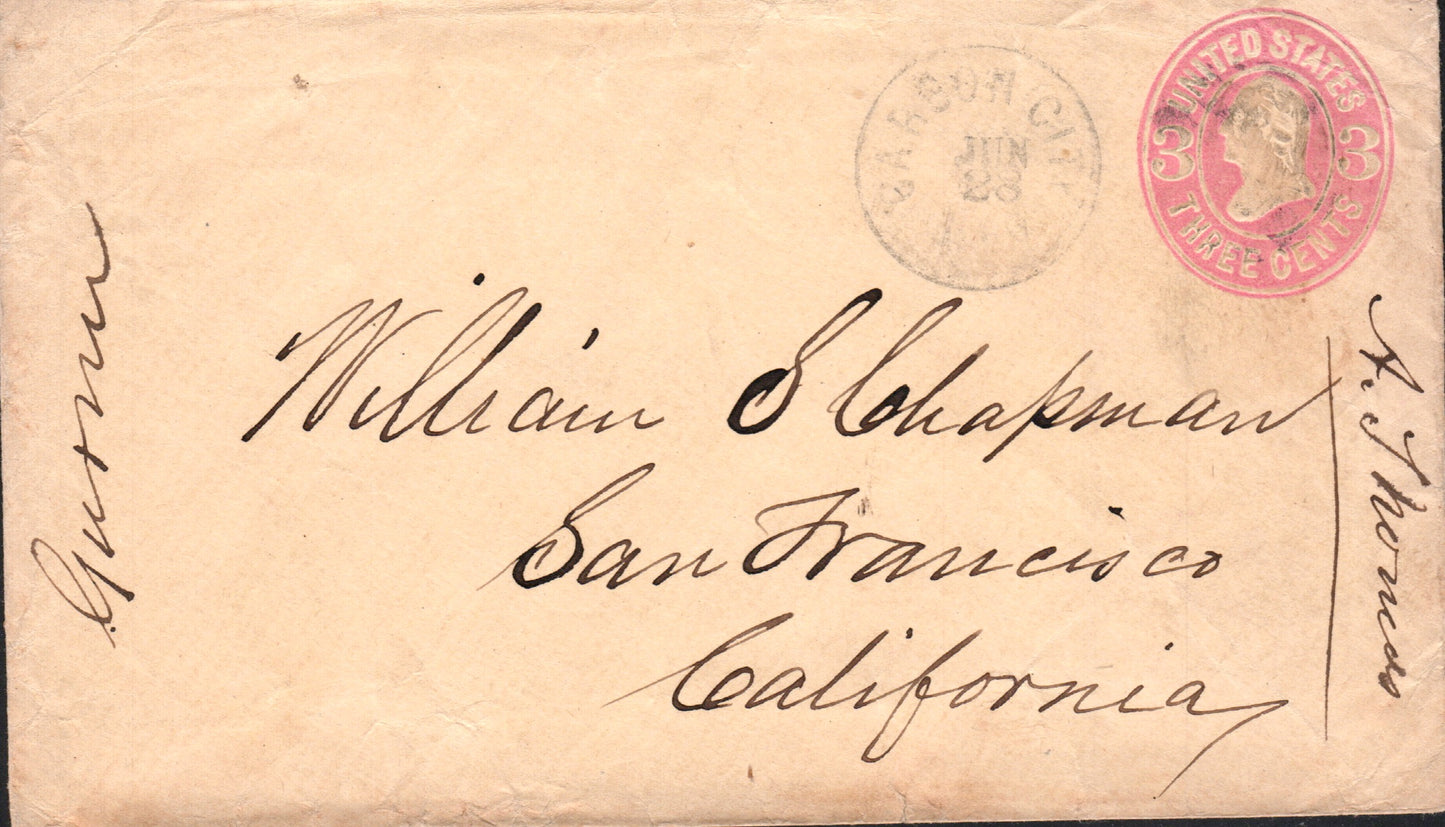 CARSON CITY
JUN
28
UNITED STATES
3 3
THREE CENTS
William S Chapman
San Francisco
California
A. Thomas